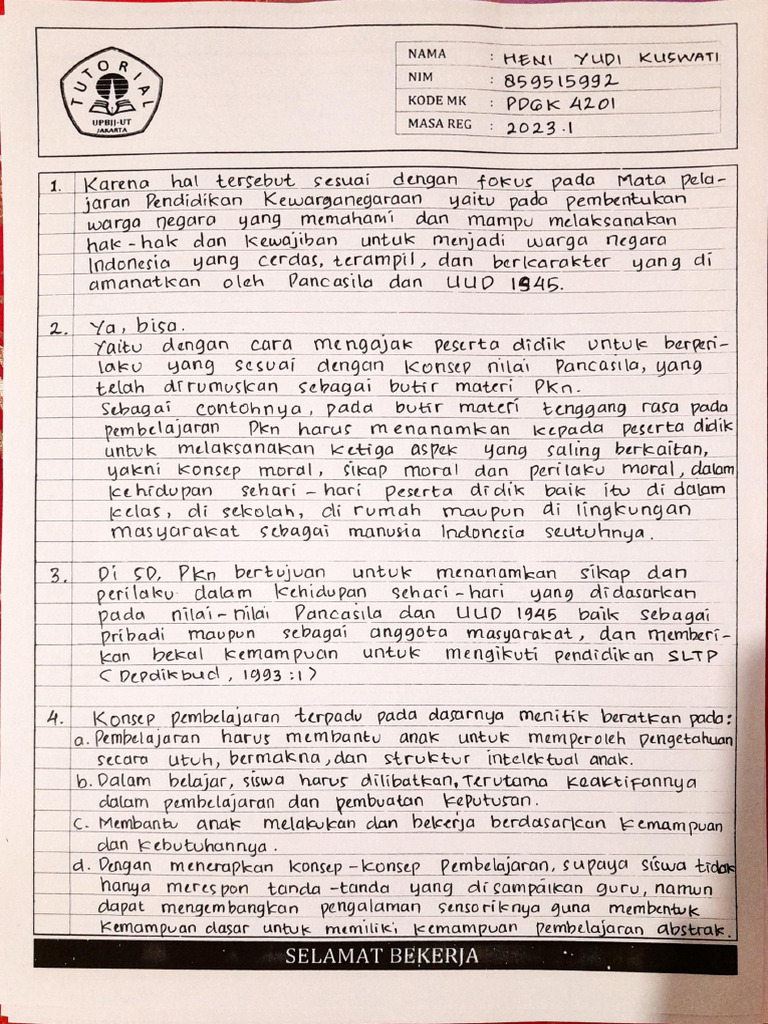 TUTORIAL
UPBJJ-UT
JAKARTA
NAMA : HENI YUDI KUSWATI
NIM : 859515992
KODE MK : PDGK 4201
MASA REG : 2023.1
1. Karena hal tersebut sesuai dengan fokus pada Mata pela-
jaran Pendidikan Kewarganegaraan yaitu pada pembentukan
warga negara yang memahami dan mampu melaksanakan
hak-hak dan kewajiban untuk menjadi warga negara
Indonesia yang cerdas, terampil, dan berkarakter yang di
amanatkan oleh Pancasila dan UUD 1945.
2. Ya, bisa.
Yaitu dengan cara mengajak peserta didik untuk berperi-
laku yang sesuai dengan konsep nilai Pancasila, yang
telah dirumuskan sebagai butir materi PKn.
Sebagai contohnya, pada butir materi tenggang rasa pada
pembelajaran PKn harus menanamkan kepada peserta didik
untuk melaksanakan ketiga aspek yang saling berkaitan,
yakni konsep moral, sikap moral dan perilaku moral, dalam
kehidupan sehari-hari peserta didik baik itu di dalam
kelas, di sekolah, di rumah maupun di lingkungan
masyarakat sebagai manusia Indonesia seutuhnya.
3. Di SD, PKn bertujuan untuk menanamkan sikap dan
perilaku dalam kehidupan sehari-hari yang didasarkan
pada nilai-nilai Pancasila dan UUD 1945 baik sebagai
pribadi maupun sebagai anggota masyarakat, dan memberi-
kan bekal kemampuan untuk mengikuti pendidikan SLTP
(Depdikbud, 1993:1)
4. Konsep pembelajaran terpadu pada dasarnya menitik beratkan pada:
a. Pembelajaran harus membantu anak untuk memperoleh pengetahuan
secara utuh, bermakna, dan struktur intelektual anak.
b. Dalam belajar, siswa harus dilibatkan, Terutama keaktifannya
dalam pembelajaran dan pembuatan keputusan.
c. Membantu anak melakukan dan bekerja berdasarkan kemampuan
dan kebutuhannya.
d. Dengan menerapkan konsep-konsep Pembelajaran, supaya siswa tidak
hanya merespon tanda-tanda yang disampaikan guru, namun
dapat mengembangkan pengalaman sensoriknya guna membentuk
kemampuan dasar untuk memiliki kemampuan pembelajaran abstrak.
SELAMAT BEKERJA